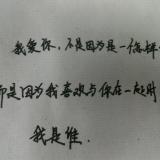 我爱你，不是因为是一个怎样
而是因为我喜欢与你在一起时
我是谁.